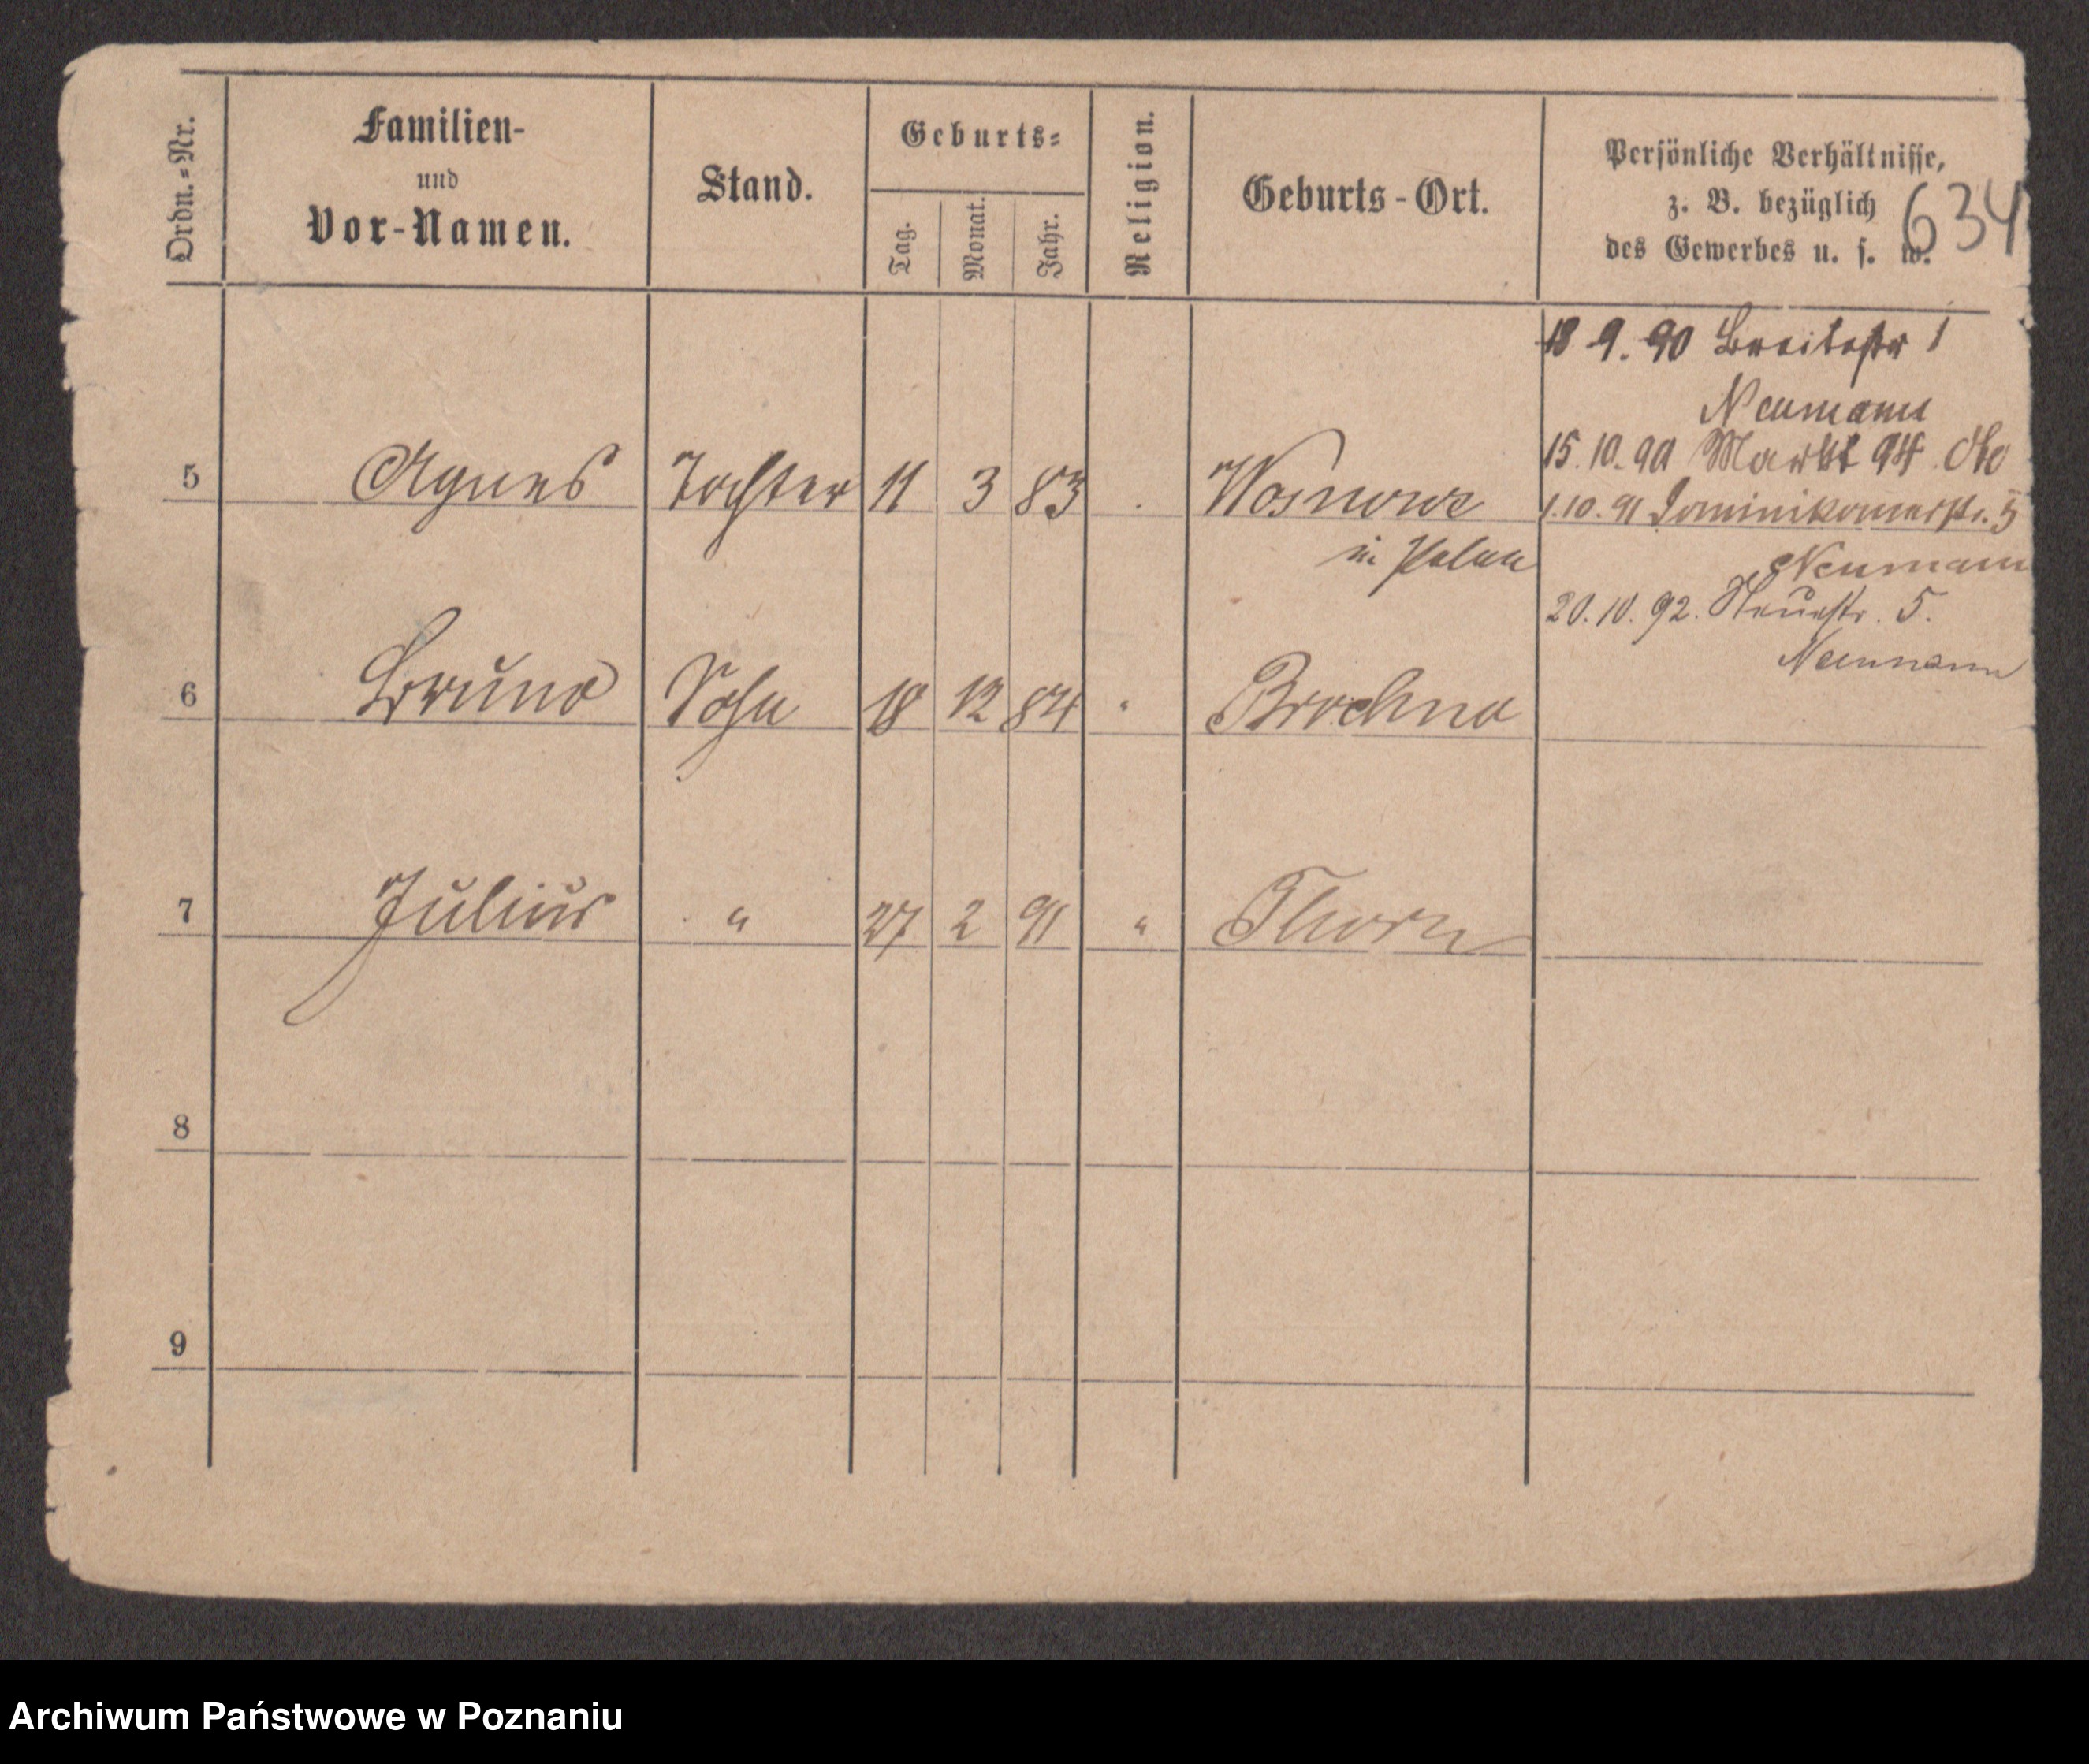 Ordn.-Nr.
Familien-
und
Vor-Namen.
Stand.
Geburts-
Tag.
Monat.
Jahr.
Religion.
Geburts-Ort.
Persönliche Verhältnisse,
z. B. bezüglich
des Gewerbes u. s. w.
634
18 9. 90 Breitestr 1
Neumann
15. 10. 90 Markt 94
5 Agnes Tochter 11 3 83 Wosnowe
1. 10. 91 Dominikanerstr. 5
in Polen
Neumann
20. 10. 92. Neuestr. 5.
Neumann
6 Bruno Sohn 18 12 84 " Brochno
7 Julius " 27 2 91 " Thorn
8
9
Archiwum Państwowe w Poznaniu